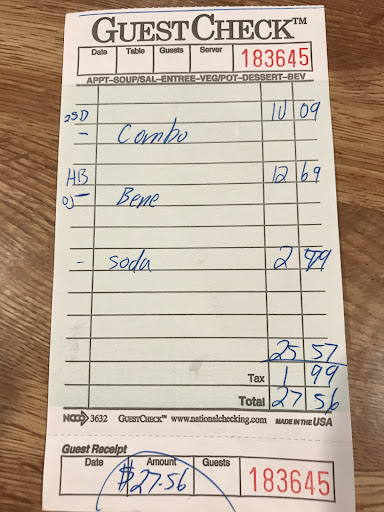 GUESTCHECK™
Date Table Guests Server 183645
APPT-SOUP/SAL-ENTREE-VEG/POT-DESSERT-BEV
2SD 10 09
- Combo
HB 12 69
OJ - Bene
- Soda 2 79
25 57
Tax 1 99
Total 27 56
NCCO 3632 GUESTCHECK™ www.nationalchecking.com MADE IN THE USA
Guest Receipt
Date Amount Guests 183645
$27.56